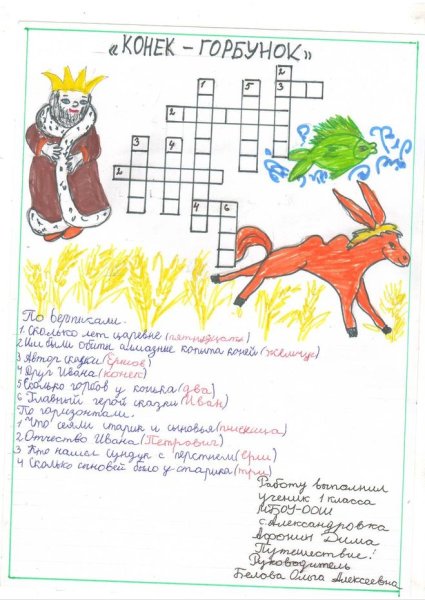 «КОНЕК – ГОРБУНОК»
2
1
5
3
2
3
4
2
4
6
По вертикали.
1 Сколько лет царевне (пятнадцать)
2 Чем были обиты алмазные копыта коней (жемчуг)
3 Автор сказки (Ершов)
4 Друг Ивана (конек)
5 Сколько горбов у конька (два)
6 Главный герой сказки (Иван)
По горизонтали.
1 Что сеяли старик и сыновья (пшеница)
2 Отчество Ивана (Петрович)
3 Кто нашел сундук с перстнем (Ерш)
4 Сколько сыновей было у старика (три)
Работу выполнил
ученик 1 класса
МБОУ-ООШ
с. Александровка
Афонин Дима
Путешествие!
Руководитель
Белова Ольга Алексеевна